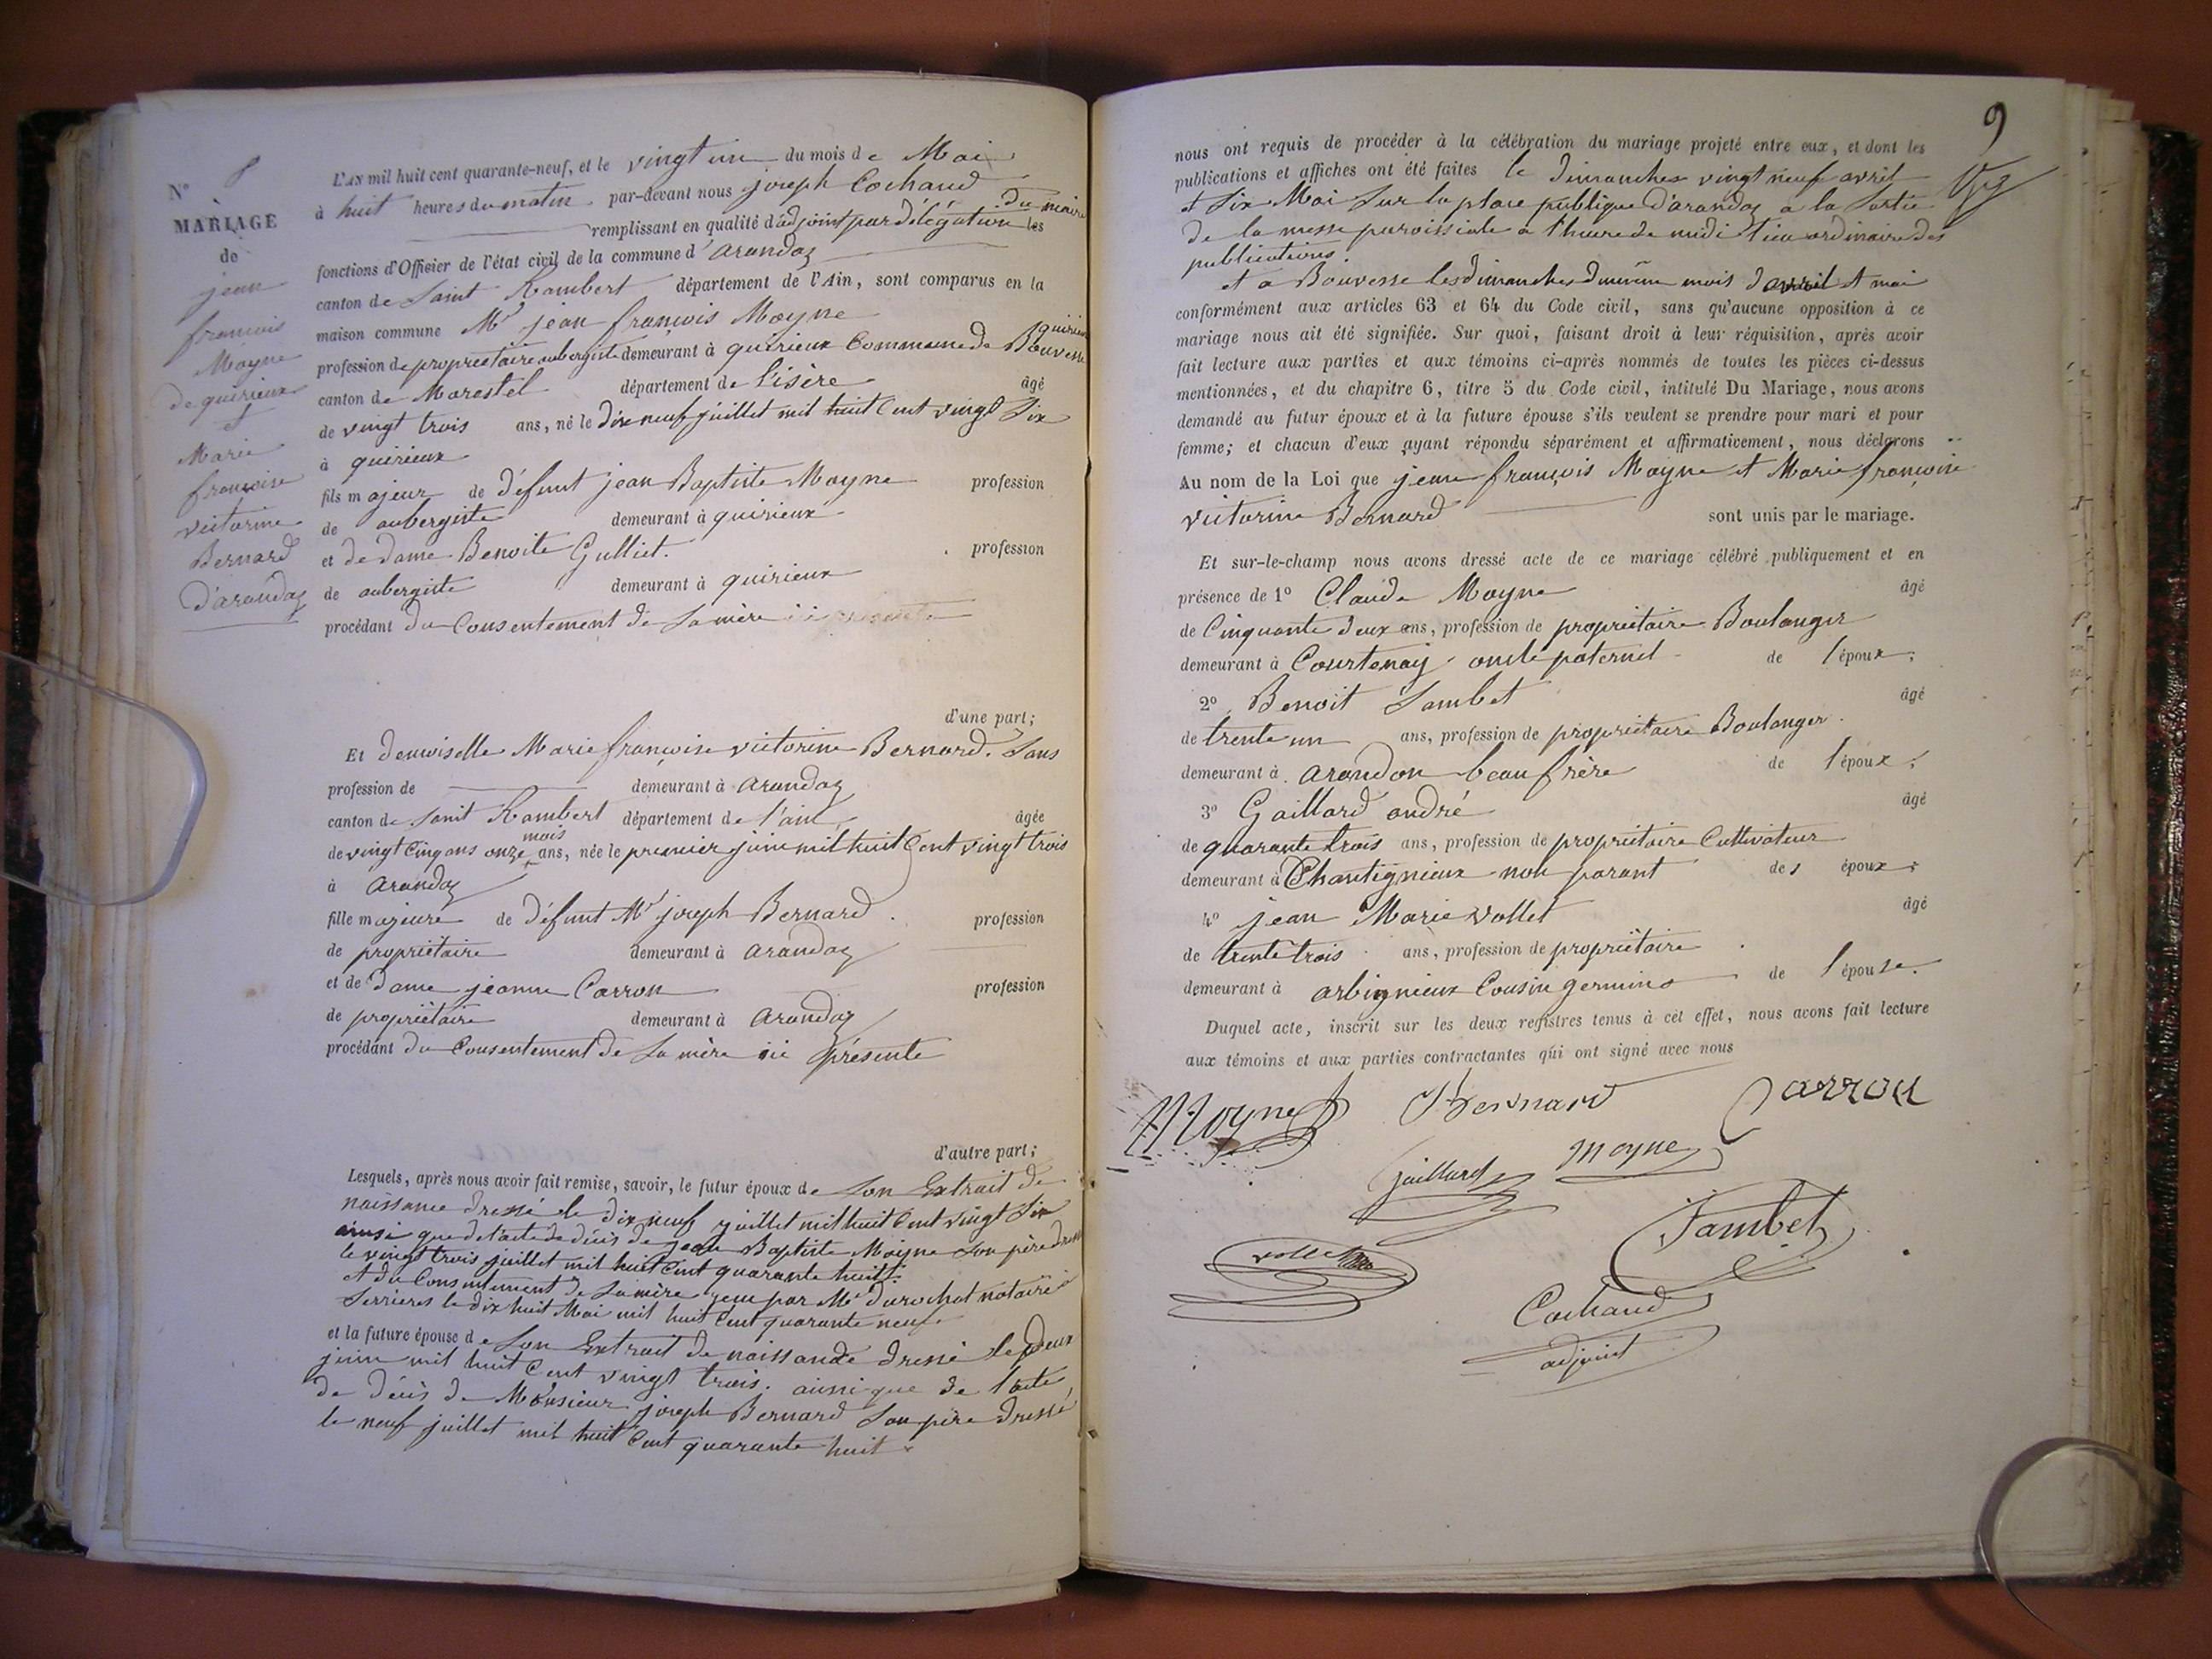 N° 8
MARIAGE
de
jean
francois
Moyne
de quirieux
et
Marie
francoise
victorine
Bernard
d'arandaz
L'AN mil huit cent quarante-neuf, et le vingt un du mois de Mai
à huit heures du matin par-devant nous joseph Cochaud
remplissant en qualité d'adjoint par délégation du maire les
fonctions d'Officier de l'état civil de la commune d'arandaz
canton de Saint Rambert département de l'Ain, sont comparus en la
maison commune Mr jean françois Moyne
profession de propriétaire aubergiste demeurant à quirieux Commune de Bouvesse quirieu
canton de Morestel département de l'isère âgé
de vingt trois ans, né le dix neuf juillet mil huit Cent vingt Six
à quirieux
fils majeur de défunt jean Baptiste Moyne profession
de aubergiste demeurant à quirieux
et de dame Benoite Gulliet. profession
de aubergiste demeurant à quirieux
procédant du Consentement de Sa mère
d'une part;
Et demoiselle Marie françoise victorine Bernard. Sans
profession de demeurant à arandaz
canton de Saint Rambert département de l'ain âgée
de vingt Cinq ans onze mois ans, née le premier juin mil huit Cent vingt trois
à arandaz
fille majeure de défunt Mr joseph Bernard profession
de propriétaire demeurant à arandaz
et de Dame jeanne Carron profession
de propriétaire demeurant à arandaz
procédant du Consentement de Sa mère ici présente
d'autre part;
Lesquels, après nous avoir fait remise, savoir, le futur époux de Son Extrait de
naissance dressé le dix neuf juillet mil huit Cent vingt Six
ainsi que de l'acte de décès de jean Baptiste Moyne Son père dressé
le vingt trois juillet mil huit Cent quarante huit.
et du Consentement de Sa mère reçu par Me durochat notaire à
Serrieres le dix huit Mai mil huit Cent quarante neuf
et la future épouse de Son Extrait de naissance dressé le deux
juin mil huit Cent vingt trois. ainsi que de l'acte
de décès de Monsieur joseph Bernard Son père dressé
le neuf juillet mil huit Cent quarante huit
9
nous ont requis de procéder à la célébration du mariage projeté entre eux, et dont les
publications et affiches ont été faites le dimanches vingt neuf avril
et Six Mai Sur la place publique d'arandaz a la Sortie
de la messe paroissiale a l'heure de midi lieu ordinaire des
publications.
et a Bouvesse les dimanches du même mois d'avril et mai
conformément aux articles 63 et 64 du Code civil, sans qu'aucune opposition à ce
mariage nous ait été signifiée. Sur quoi, faisant droit à leur réquisition, après avoir
fait lecture aux parties et aux témoins ci-après nommés de toutes les pièces ci-dessus
mentionnées, et du chapitre 6, titre 5 du Code civil, intitulé Du Mariage, nous avons
demandé au futur époux et à la future épouse s'ils veulent se prendre pour mari et pour
femme; et chacun d'eux ayant répondu séparément et affirmativement, nous déclarons
Au nom de la Loi que jean françois Moyne et Marie françoise
victorine Bernard sont unis par le mariage.
Et sur-le-champ nous avons dressé acte de ce mariage célébré publiquement et en
présence de 1° Claude Moyne âgé
de Cinquante deux ans, profession de propriétaire Boulanger
demeurant à Courtenay oncle paternel de l'époux;
2° Benoit Sambet âgé
de trente un ans, profession de propriétaire Boulanger
demeurant à arandon beau frère de l'époux;
3° Gaillard andré âgé
de quarante trois ans, profession de propriétaire Cultivateur
demeurant à Chantignieux non parant des époux;
4° jean Marie vollet âgé
de trente trois ans, profession de propriétaire
demeurant à arbignieux Cousin germins de l'épouse.
Duquel acte, inscrit sur les deux registres tenus à cet effet, nous avons fait lecture
aux témoins et aux parties contractantes qui ont signé avec nous
Moyne Bernard Carron
Gaillard Moyne
Vollet Sambet
Cochaud
adjoint